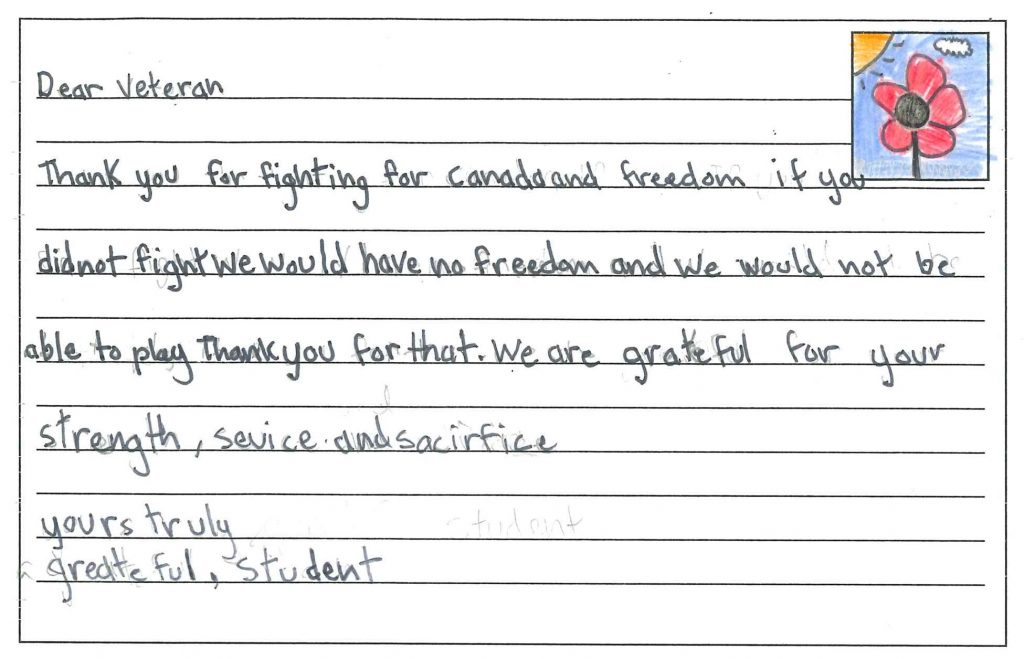 Dear Veteran
Thank you for fighting for Canada and freedom if you
didnot fight we would have no freedom and we would not be
able to play Thank you for that. We are grateful for your
strength, sevice. and sacirfice
yours truly student
a greateful, student